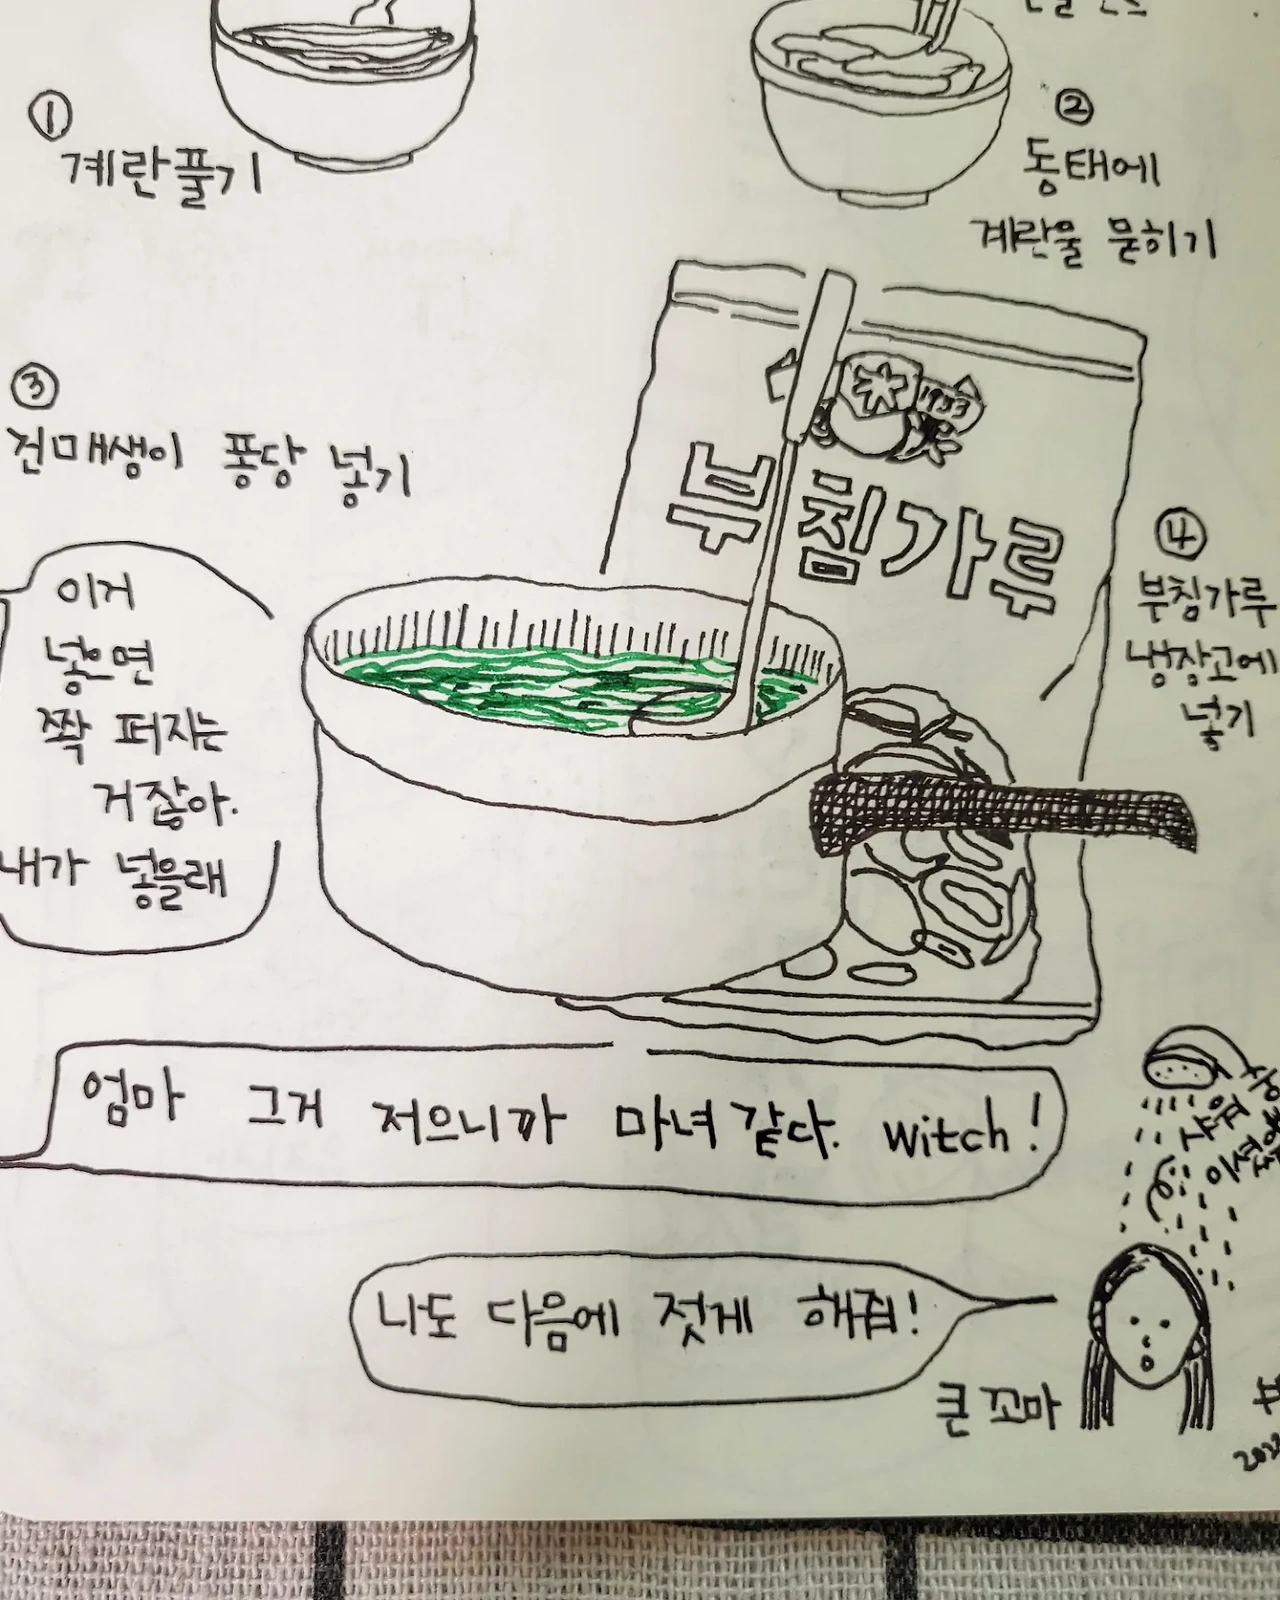 ①
계란풀기
②
동태에
계란물 묻히기
③
건매생이 퐁당 넣기
1953
부침가루
④
부침가루
냉장고에
넣기
이거
넣으면
쫙 퍼지는
거잖아.
내가 넣을래
엄마 그거 저으니까 마녀 같다. witch!
나도 다음에 젓게 해줘!
큰 꼬마
샤워